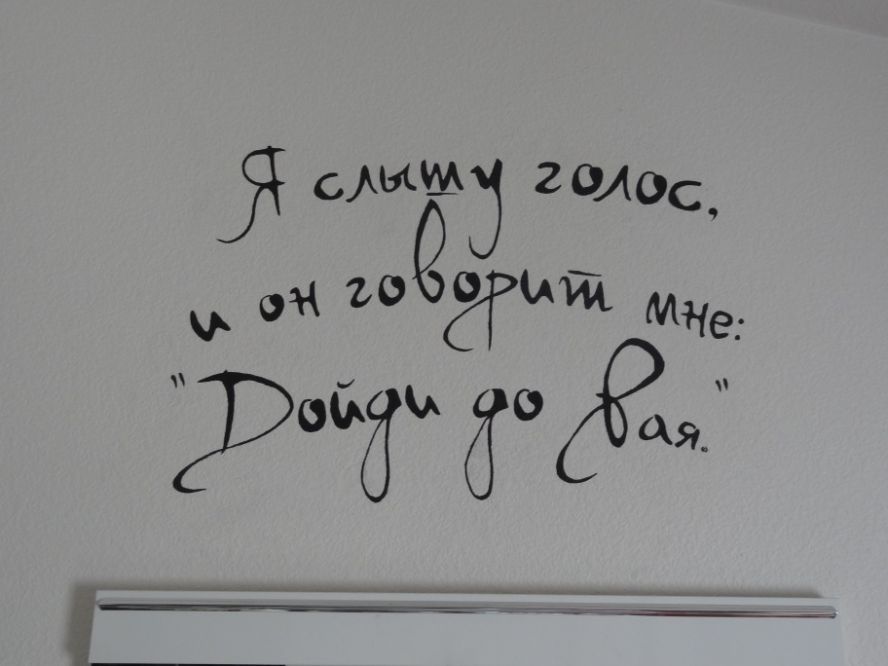 Я слышу голос,
и он говорит мне:
"Дойди до Вая."